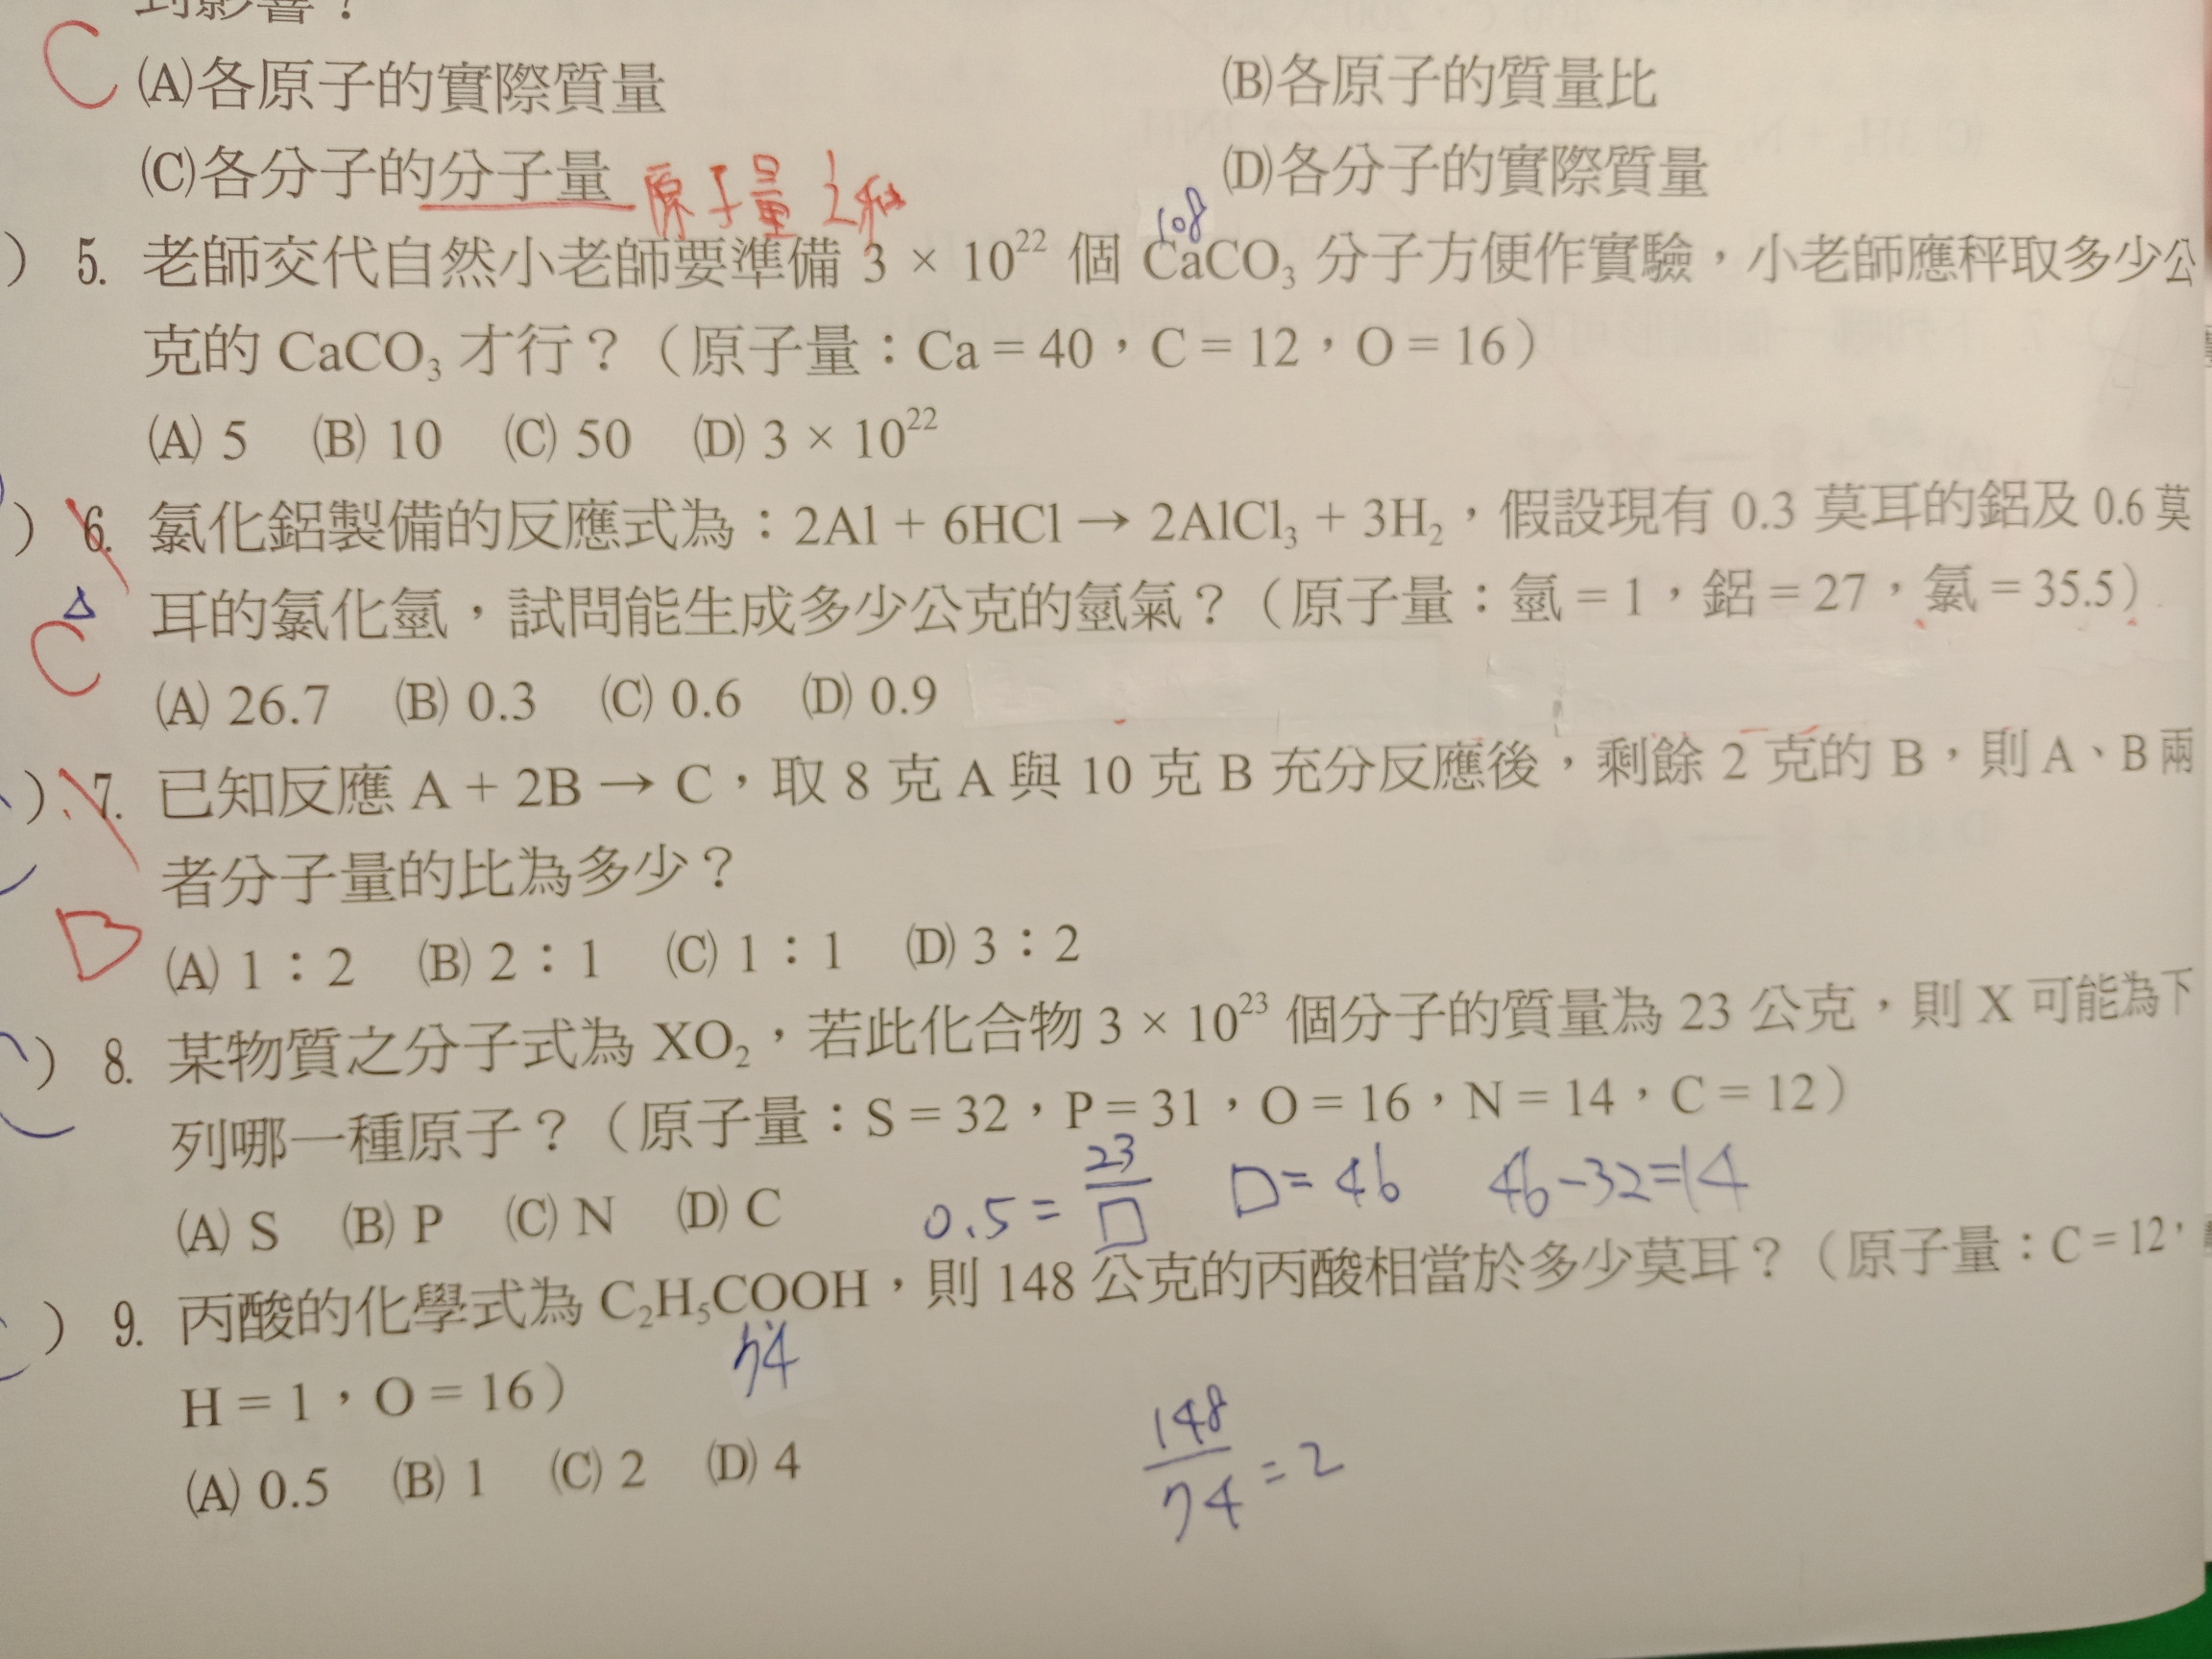 到影響？
C
(A)各原子的實際質量 (B)各原子的質量比
(C)各分子的分子量 原子量之和 (D)各分子的實際質量
108
) 5. 老師交代自然小老師要準備 3 × 10²² 個 CaCO₃ 分子方便作實驗，小老師應秤取多少公
克的 CaCO₃ 才行？（原子量：Ca = 40，C = 12，O = 16）
(A) 5 (B) 10 (C) 50 (D) 3 × 10²²
) 6. 氯化鋁製備的反應式為：2Al + 6HCl → 2AlCl₃ + 3H₂，假設現有 0.3 莫耳的鋁及 0.6 莫
耳的氯化氫，試問能生成多少公克的氫氣？（原子量：氫 = 1，鋁 = 27，氯 = 35.5）
C
(A) 26.7 (B) 0.3 (C) 0.6 (D) 0.9
) 7. 已知反應 A + 2B → C，取 8 克 A 與 10 克 B 充分反應後，剩餘 2 克的 B，則 A、B 兩
者分子量的比為多少？
B
(A) 1：2 (B) 2：1 (C) 1：1 (D) 3：2
) 8. 某物質之分子式為 XO₂，若此化合物 3 × 10²³ 個分子的質量為 23 公克，則 X 可能為下
列哪一種原子？（原子量：S = 32，P = 31，O = 16，N = 14，C = 12）
(A) S (B) P (C) N (D) C 0.5 = 23/□ □ = 46 46 - 32 = 14
) 9. 丙酸的化學式為 C₂H₅COOH，則 148 公克的丙酸相當於多少莫耳？（原子量：C = 12，
74
H = 1，O = 16）
(A) 0.5 (B) 1 (C) 2 (D) 4 148/74 = 2